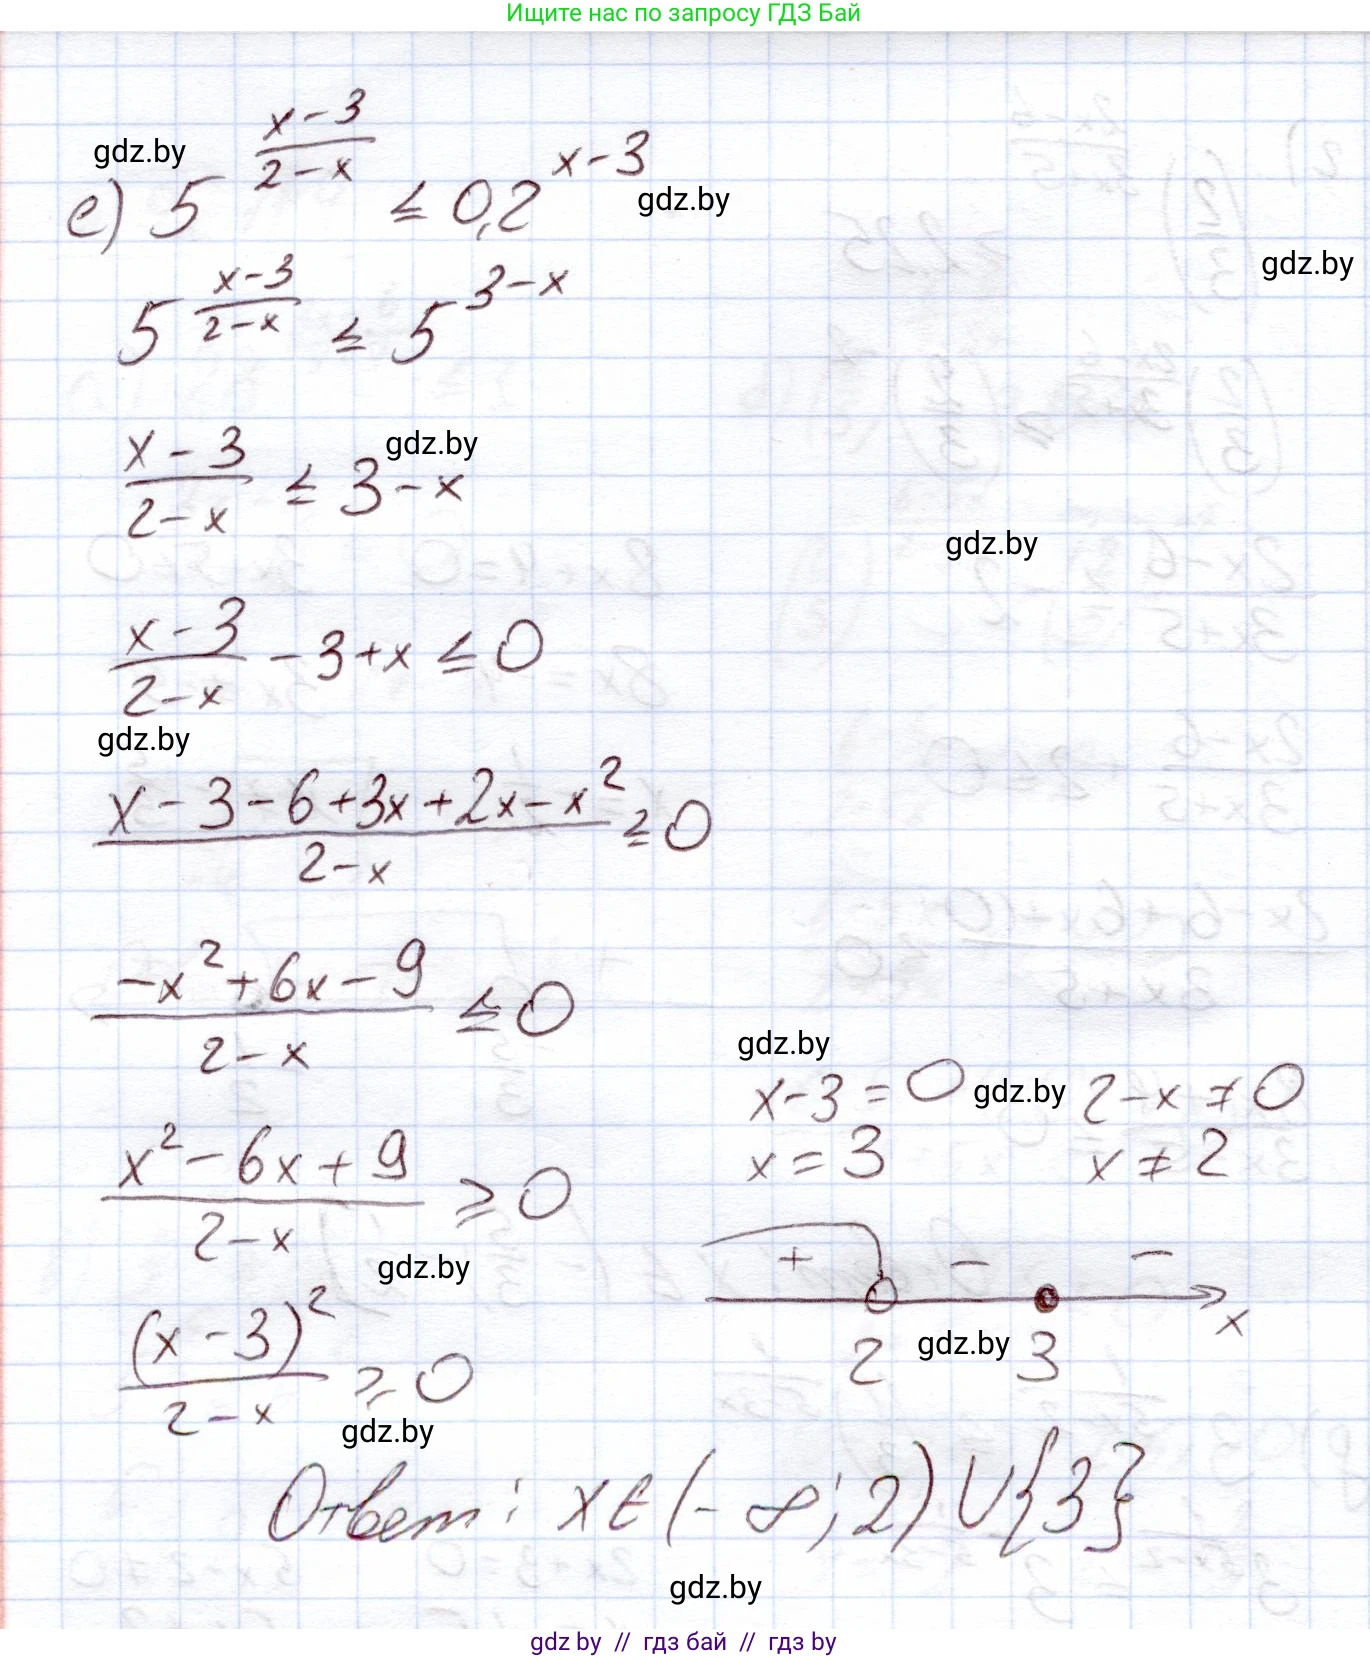 Ищите нас по запросу ГДЗ Бай
gdz.by
е) 5^((x-3)/(2-x)) ≤ 0,2^(x-3)
gdz.by
gdz.by
5^((x-3)/(2-x)) ≤ 5^(3-x)
gdz.by
(x-3)/(2-x) ≤ 3-x
gdz.by
(x-3)/(2-x) - 3 + x ≤ 0
gdz.by
(x-3-6+3x+2x-x²)/(2-x) ≤ 0
(-x²+6x-9)/(2-x) ≤ 0
gdz.by
x-3=0 gdz.by 2-x≠0
x=3 x≠2
(x²-6x+9)/(2-x) ≥ 0
gdz.by
+ - -
x
2 gdz.by 3
(x-3)²/(2-x) ≥ 0
gdz.by
Ответ: x∈(-∞;2)∪{3}
gdz.by
gdz by // гдз бай // gdz by